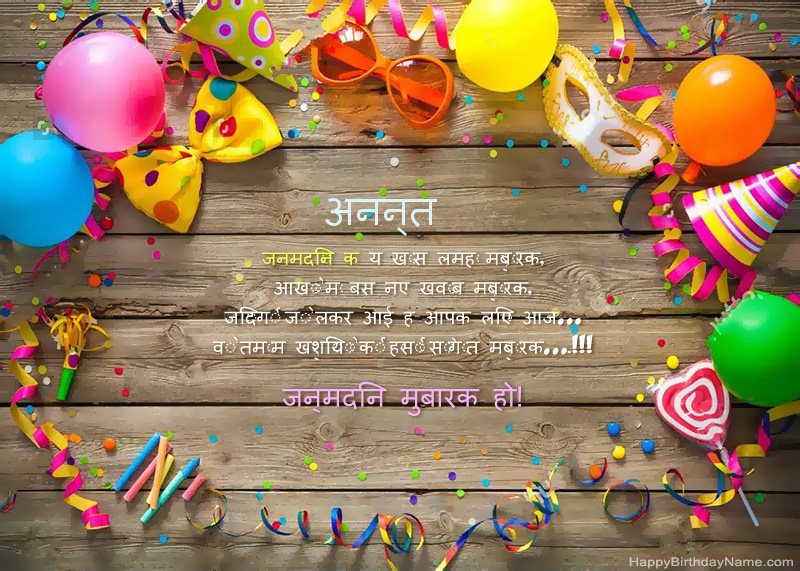 अनन्त
जनमदिन क य खास लमह मबारक,
आखों में बस नए खवाब मबारक,
जिंदगी जो लेकर आई ह आपक लिए आज...
वो तमाम खुशियों की हंसीं सौगात मबारक...!!!
जन्मदिन मुबारक हो!
HappyBirthdayName.com